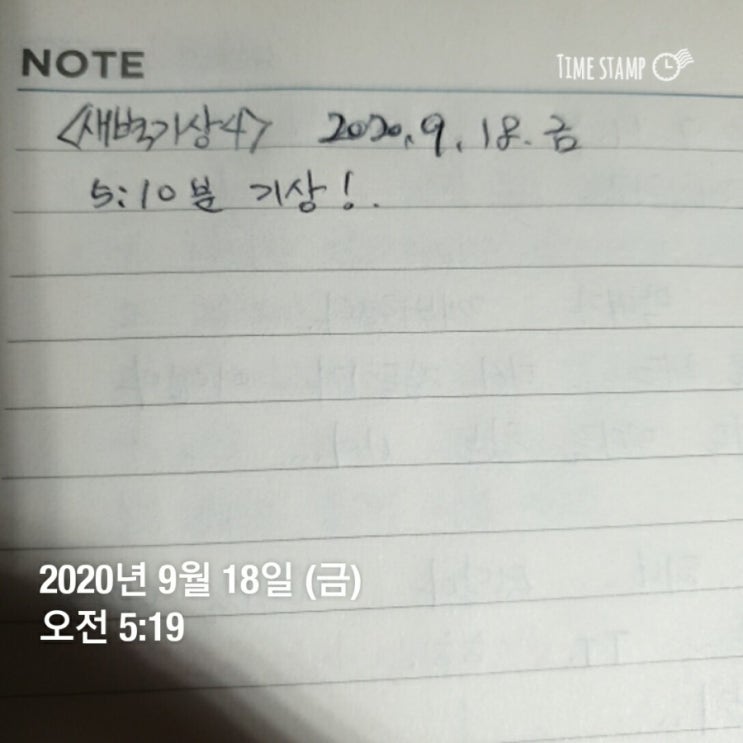 NOTE
TIME STAMP
<새벽기상4> 2020. 9. 18. 금
5:10분 기상!.
2020년 9월 18일 (금)
오전 5:19